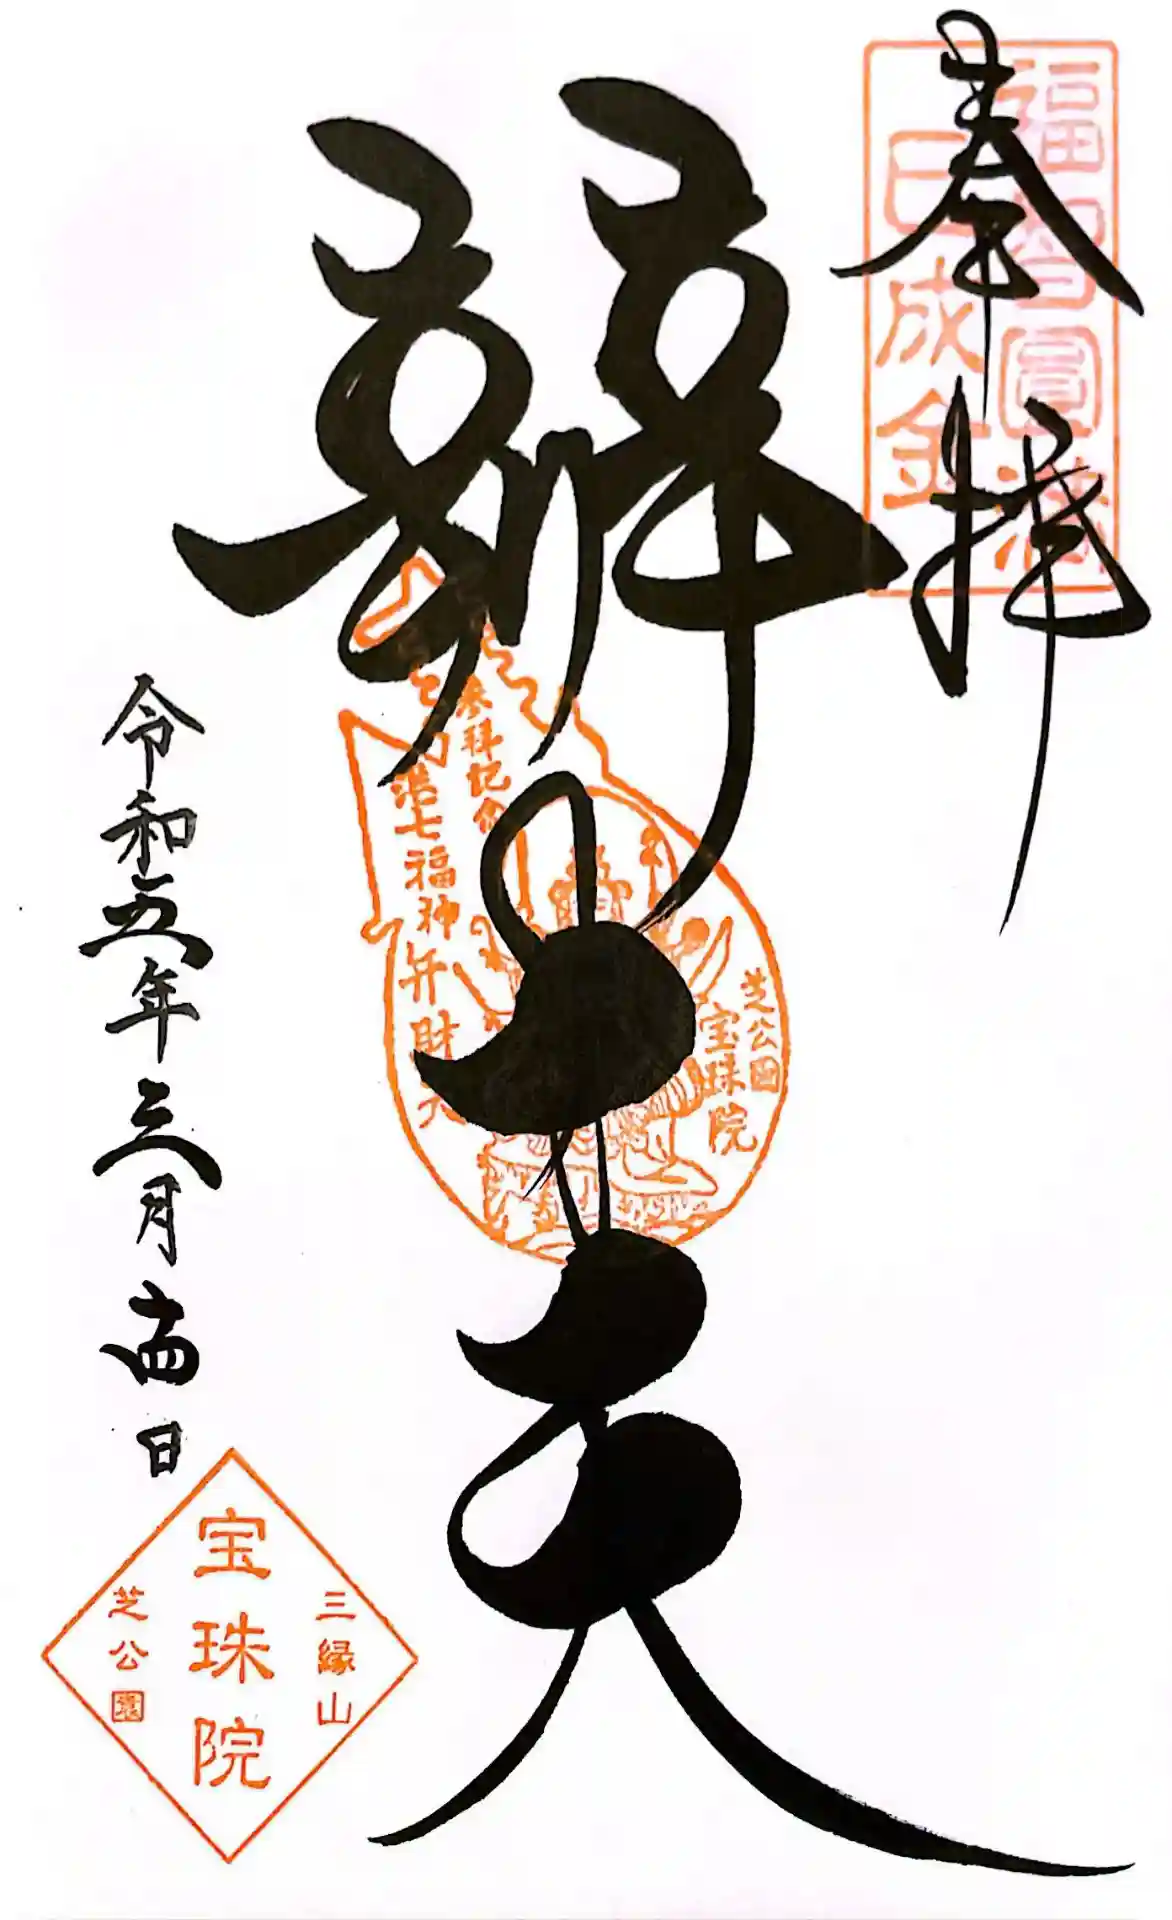 奉拝
福智圓満
巳成金
辨才天
参拝記念
港七福神弁財天
芝公園
宝珠院
令和五年三月十四日
三縁山
宝珠院
芝公園